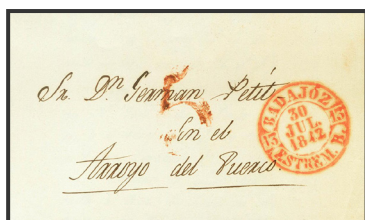 Sr. Dn. German Petit
5
En el
Arroyo del Puerco.
BADAJÓZ
30
JUL.
1842
15 15
ESTREM. B.